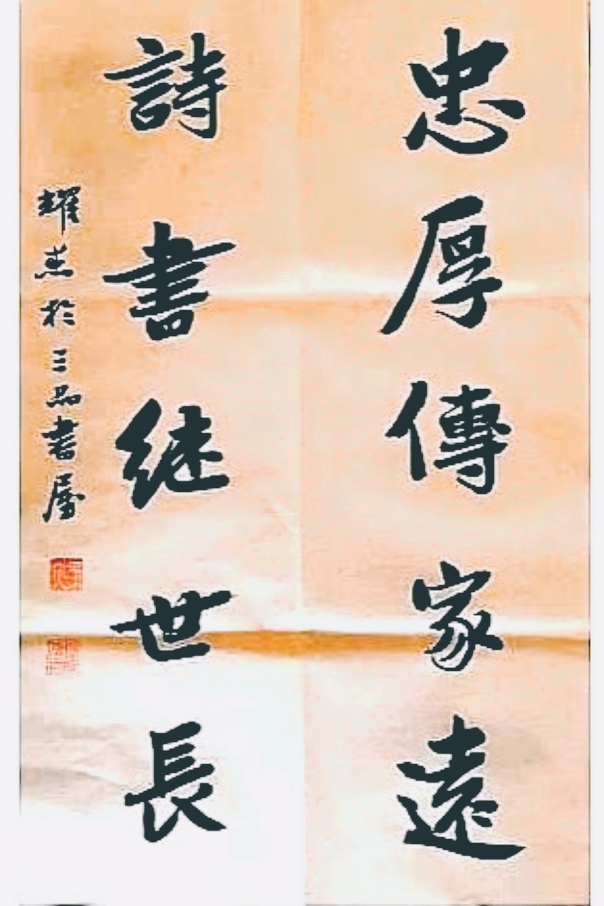 忠厚傳家遠
詩書继世長
耀燕於三品書屋